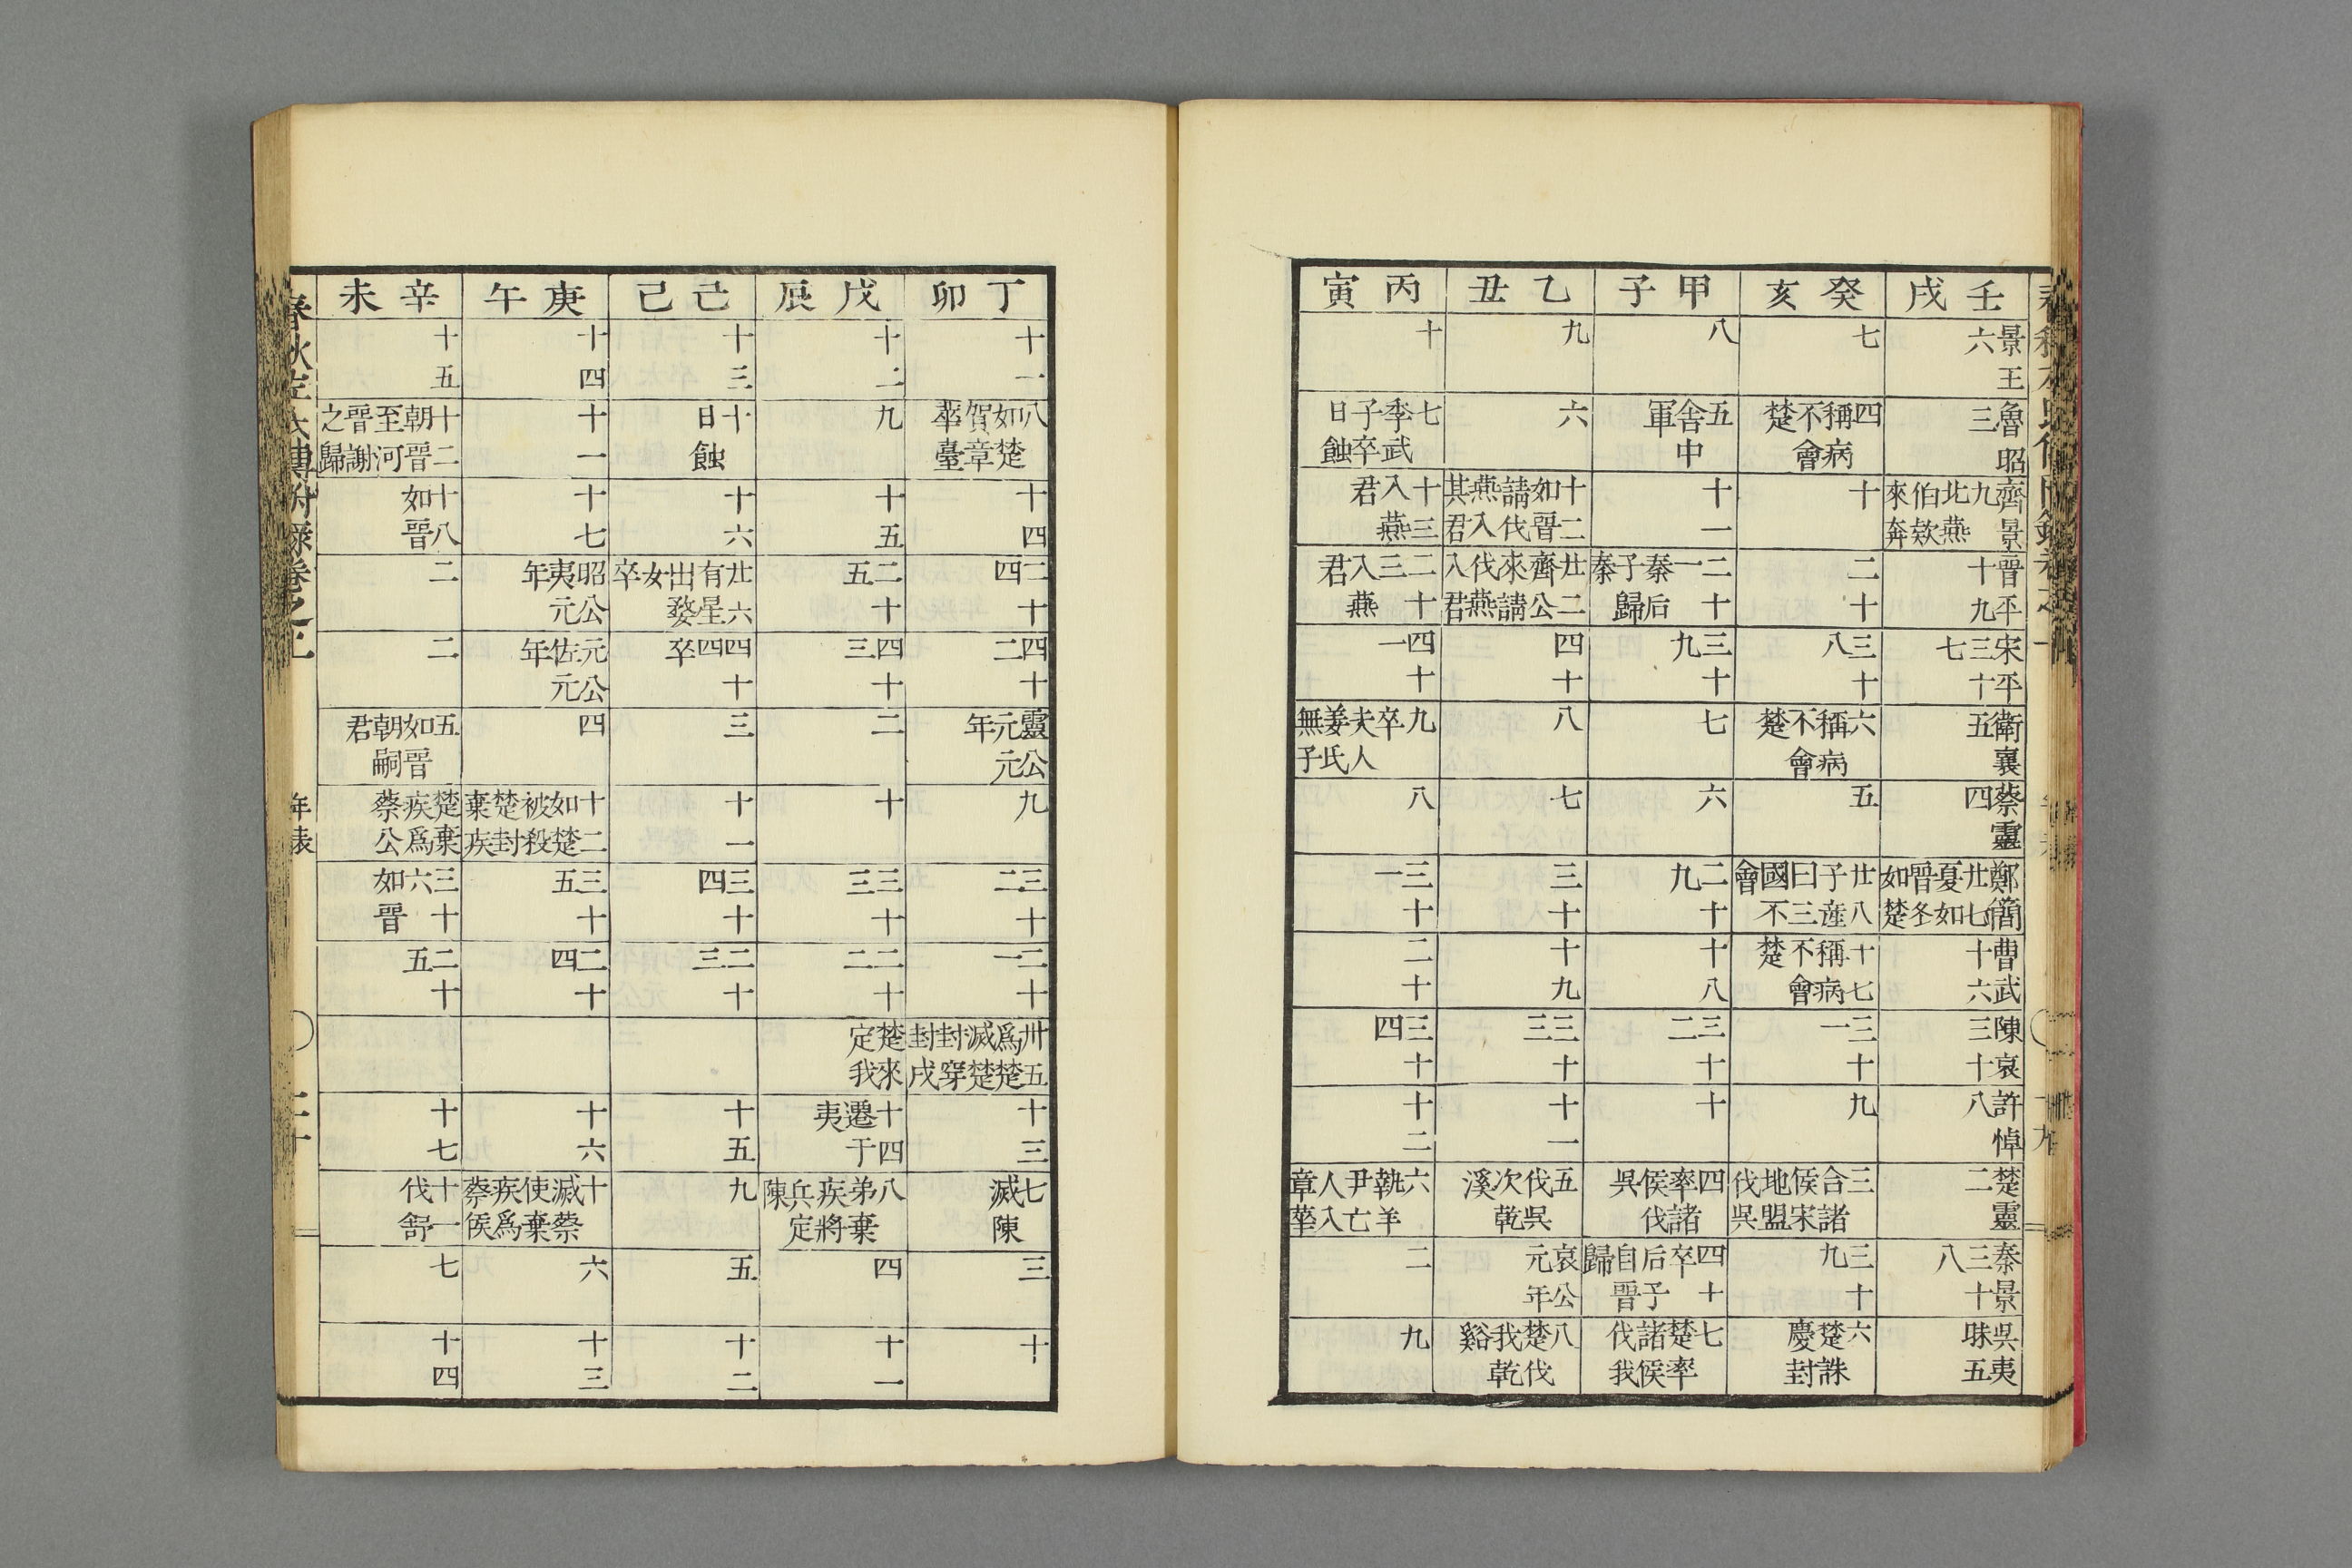 壬戌
景王六
魯昭三
齊景九北燕伯欵來奔
晉平十九
宋平三十七
衛襄五
蔡靈四
鄭簡廿七夏如晉冬如楚
曹武十六
陳哀三十
許悼八
楚靈二
秦景三十八
吳夷眛五
癸亥
七
四稱病不會楚
十
二十
三十八
六稱病不會楚
五
廿八子產曰三國不會
十七稱病不會楚
三十一
九
三合諸侯宋地盟伐吳
三十九
六楚誅慶封
甲子
八
五舍中軍
十一
二十一秦后子歸秦
三十九
七
六
二十九
十八
三十二
十
四率諸侯伐吳
四十卒后子自晉歸
七楚率諸侯伐我
乙丑
九
六
十二如晉請伐燕入其君
廿二齊公來請伐燕入君
四十
八
七
三十
十九
三十三
十一
五伐吳次乾溪
哀公元年
八楚伐我乾谿
丙寅
十
七季武子卒日蝕
十三入燕君
二十三入燕君
四十一
九卒夫人姜氏無子
八
三十一
二十
三十四
十二
六執羊尹亡人入章華
二
九
丁卯
十一
八如楚賀章華臺
十四
二十四
四十二
靈公元元年
九
三十二
二十一
卅五爲楚滅楚封穿封戌
十三
七滅陳
三
十
戊辰
十二
九
十五
二十五
四十三
二
十
三十三
二十二
楚來定我
十四遷于夷
八弟棄疾將兵定陳
四
十一
己巳
十三
十日蝕
十六
廿六有星出婺女卒
四十四卒
三
十一
三十四
二十三
十五
九
五
十二
庚午
十四
十一
十七
昭公夷元年
元公佐元年
四
十二如楚被殺楚封棄疾
三十五
二十四
十六
十滅蔡使棄疾爲蔡侯
六
十三
辛未
十五
十二朝晉至河晉謝之歸
十八如晉
二
二
五如晉朝嗣君
楚棄疾爲蔡公
三十六如晉
二十五
十七
十一伐舒
七
十四
春秋左氏傳附錄卷之上
年表
二十